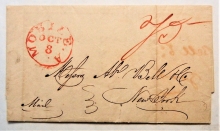 MOBILE
OCT
8
75
Messrs Abm Bell & Co
New York
Mail